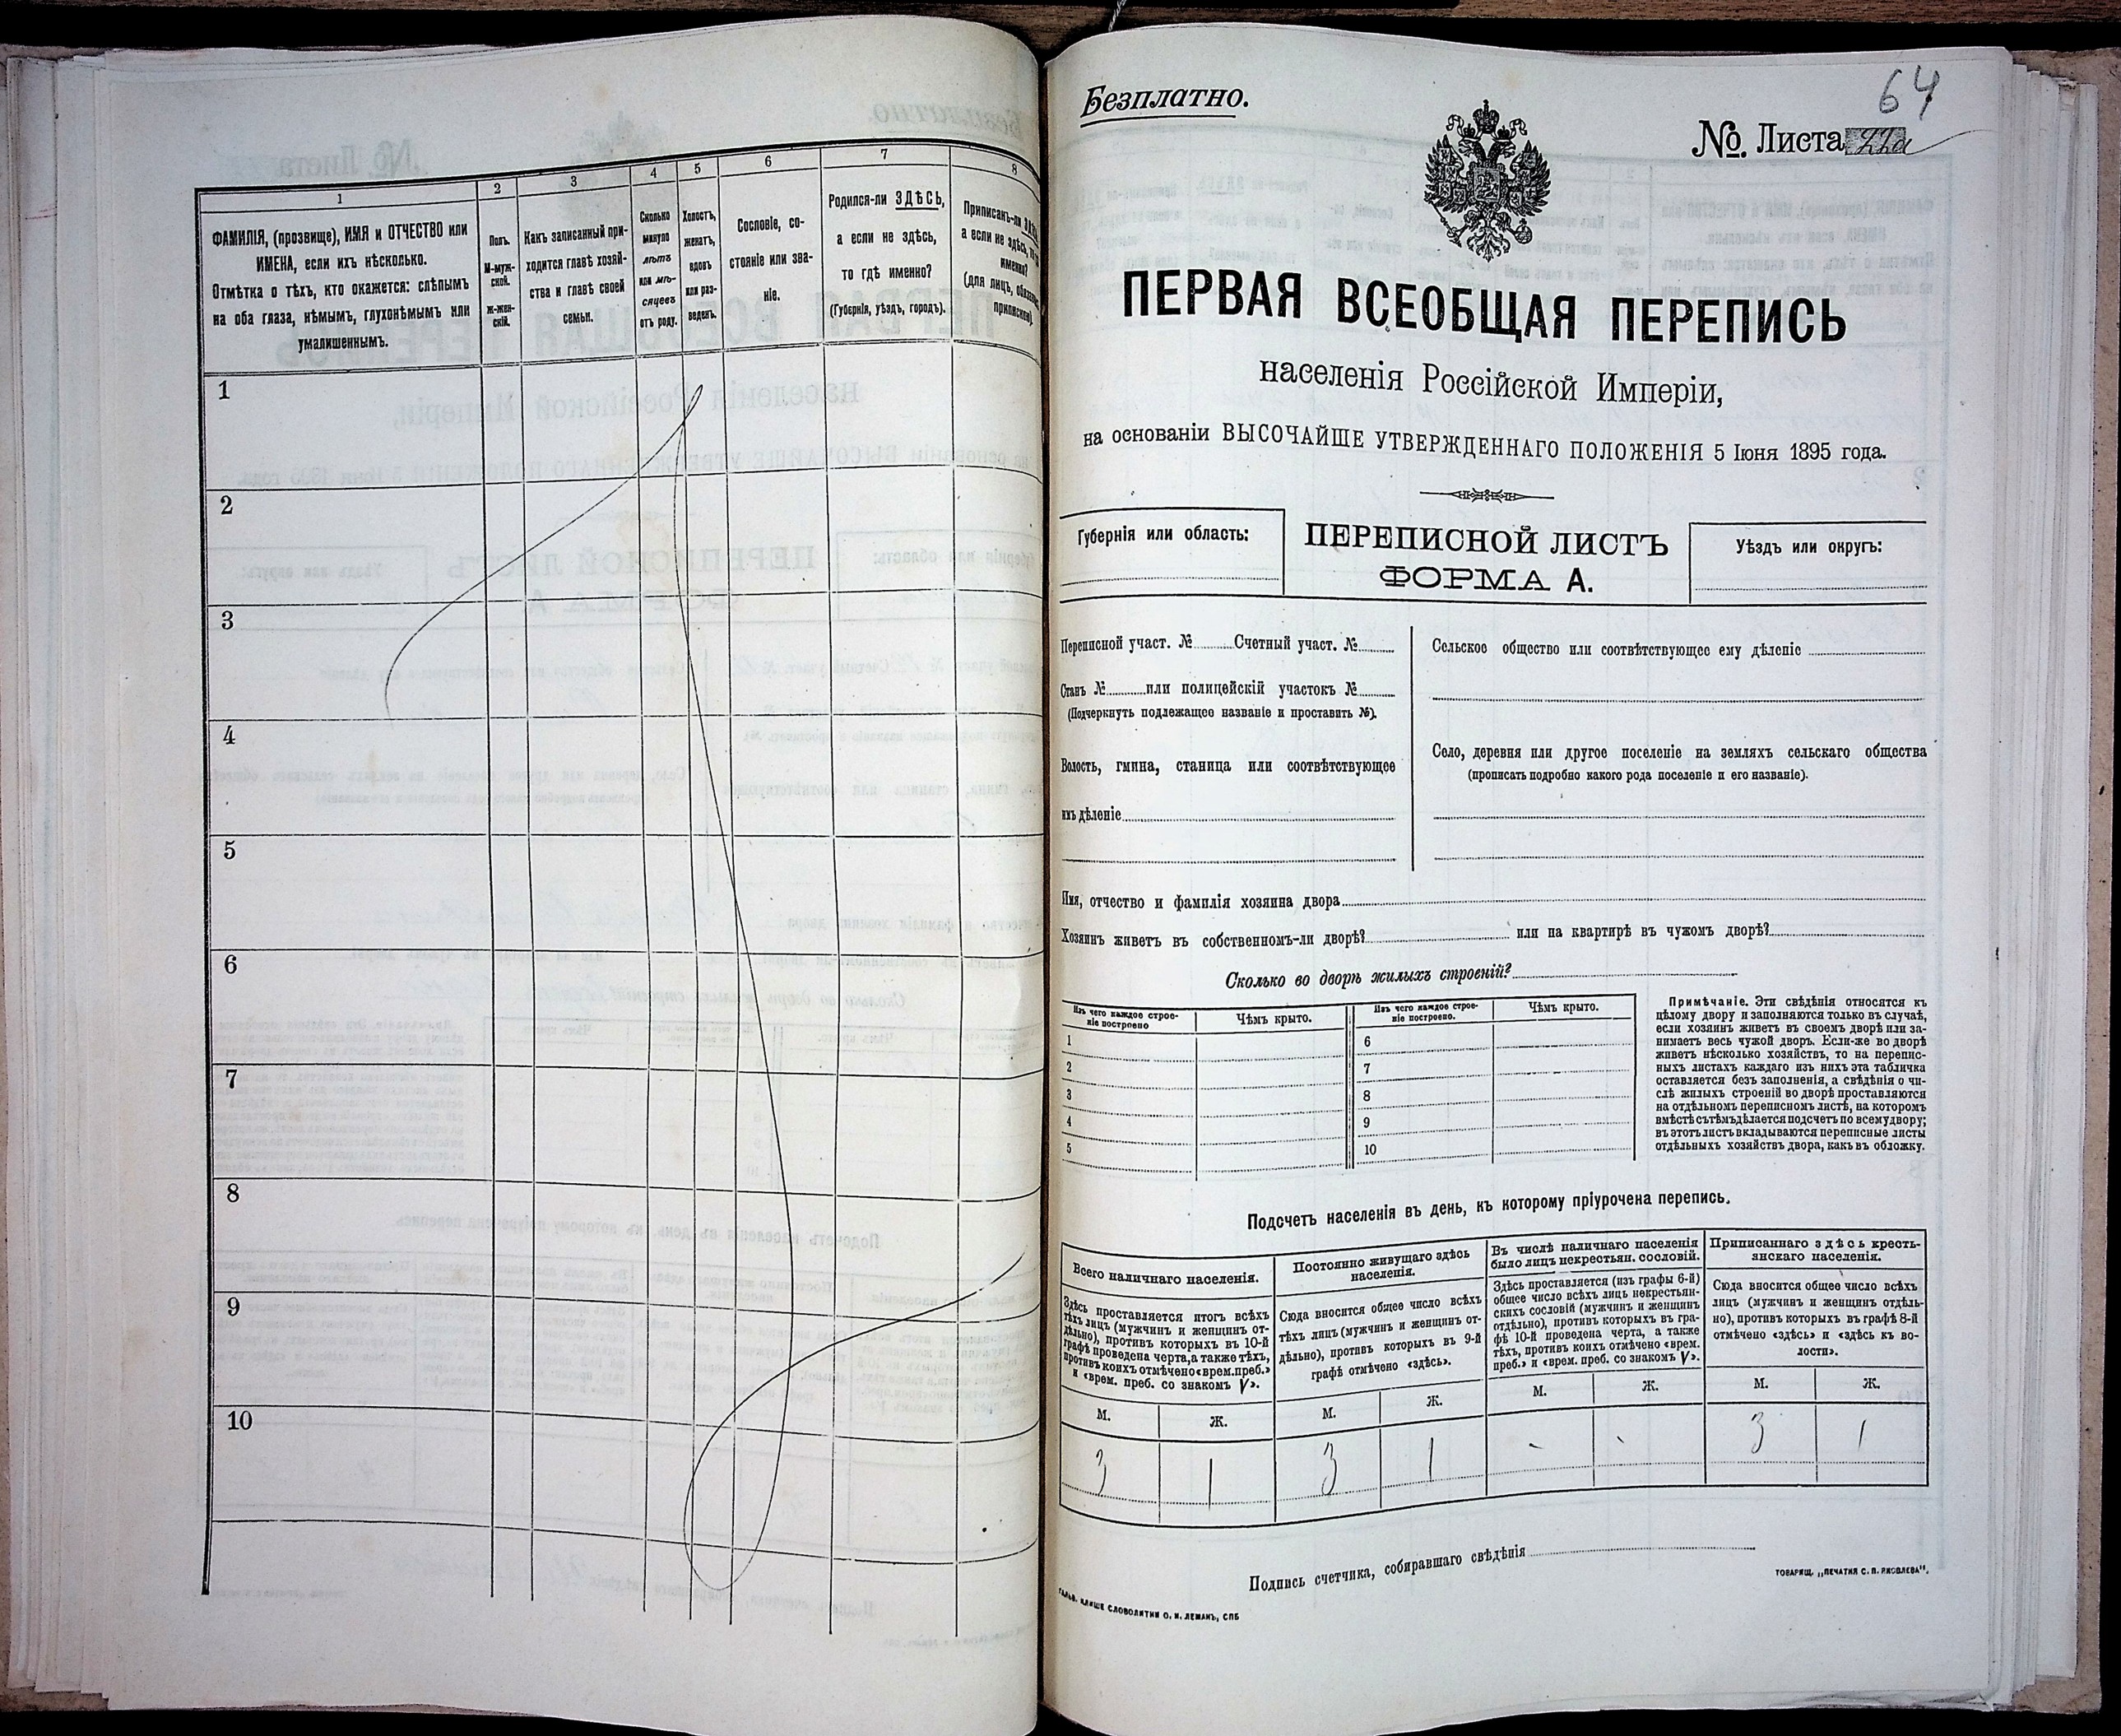 1
2
3
4
5
6
7
8
ФАМИЛІЯ, (прозвище), ИМЯ и ОТЧЕСТВО или
ИМЕНА, если ихъ нѣсколько.
Отмѣтка о тѣхъ, кто окажется: слѣпымъ
на оба глаза, нѣмымъ, глухонѣмымъ или
умалишеннымъ.
Полъ.
М-муж-
ской.
Ж-жен-
скій.
Какъ записанный при-
ходится главѣ хозяй-
ства и главѣ своей
семьи.
Сколько
минуло
лѣтъ
или мѣ-
сяцевъ
отъ роду.
Холостъ,
женатъ,
вдовъ
или раз-
веденъ.
Сословіе, со-
стояніе или зва-
ніе.
Родился-ли ЗДѢСЬ,
а если не здѣсь,
то гдѣ именно?
(Губернія, уѣздъ, городъ).
Приписанъ-ли
а если не здѣсь,
именно?
(для лицъ,
1
2
3
4
5
6
7
8
9
10
64
Безплатно.
№. Листа 22а
ПЕРВАЯ ВСЕОБЩАЯ ПЕРЕПИСЬ
населенія Россійской Имперіи,
на основаніи ВЫСОЧАЙШЕ УТВЕРЖДЕННАГО ПОЛОЖЕНІЯ 5 Іюня 1895 года.
Губернія или область:
ПЕРЕПИСНОЙ ЛИСТЪ
ФОРМА А.
Уѣздъ или округъ:
Переписной участ. № Счетный участ. №
Станъ № или полицейскій участокъ №
(Подчеркнуть подлежащее названіе и проставить №).
Волость, гмина, станица или соотвѣтствующее
ихъ дѣленіе
Сельское общество или соотвѣтствующее ему дѣленіе
Село, деревня или другое поселеніе на земляхъ сельскаго общества
(прописать подробно какого рода поселеніе и его названіе).
Имя, отчество и фамилія хозяина двора
Хозяинъ живетъ въ собственномъ-ли дворѣ? или на квартирѣ въ чужомъ дворѣ?
Сколько во дворѣ жилыхъ строеній?
Изъ чего каждое строе-
ніе построено
Чѣмъ крыто.
Изъ чего каждое строе-
ніе построено.
Чѣмъ крыто.
1
2
3
4
5
6
7
8
9
10
Примѣчаніе. Эти свѣдѣнія относятся къ
цѣлому двору и заполняются только въ случаѣ,
если хозяинъ живетъ въ своемъ дворѣ или за-
нимаетъ весь чужой дворъ. Если-же во дворѣ
живетъ нѣсколько хозяйствъ, то на перепис-
ныхъ листахъ каждаго изъ нихъ эта табличка
оставляется безъ заполненія, а свѣдѣнія о чи-
слѣ жилыхъ строеній во дворѣ проставляются
на отдѣльномъ переписномъ листѣ, на которомъ
вмѣстѣ съ тѣмъ дѣлается подсчетъ по всему двору;
въ этотъ листъ вкладываются переписные листы
отдѣльныхъ хозяйствъ двора, какъ въ обложку.
Подсчетъ населенія въ день, къ которому пріурочена перепись.
Всего наличнаго населенія.
Здѣсь проставляется итогъ всѣхъ
тѣхъ лицъ (мужчинъ и женщинъ от-
дѣльно), противъ которыхъ въ 10-й
графѣ проведена черта, а также тѣхъ,
противъ коихъ отмѣчено «врем. преб.»
и «врем. преб. со знакомъ V».
Постоянно живущаго здѣсь
населенія.
Сюда вносится общее число всѣхъ
тѣхъ лицъ (мужчинъ и женщинъ от-
дѣльно), противъ которыхъ въ 9-й
графѣ отмѣчено «здѣсь».
Въ числѣ наличнаго населенія
было лицъ некрестьян. сословій.
Здѣсь проставляется (изъ графы 6-й)
общее число всѣхъ лицъ некрестьян-
скихъ сословій (мужчинъ и женщинъ
отдѣльно), противъ которыхъ въ гра-
фѣ 10-й проведена черта, а также
тѣхъ, противъ коихъ отмѣчено «врем.
преб.» и «врем. преб. со знакомъ V».
Приписаннаго здѣсь кресть-
янскаго населенія.
Сюда вносится общее число всѣхъ
лицъ (мужчинъ и женщинъ отдѣль-
но), противъ которыхъ въ графѣ 8-й
отмѣчено «здѣсь» и «здѣсь въ во-
лости».
М. Ж. М. Ж. М. Ж. М. Ж.
3 1 3 1 - - 3 1
Подпись счетчика, собиравшаго свѣдѣнія
ГАЛЬВ. КЛИШЕ СЛОВОЛИТНИ О. И. ЛЕМАНЪ, СПБ
ТОВАРИЩ. „ПЕЧАТНЯ С. П. ЯКОВЛЕВА“.